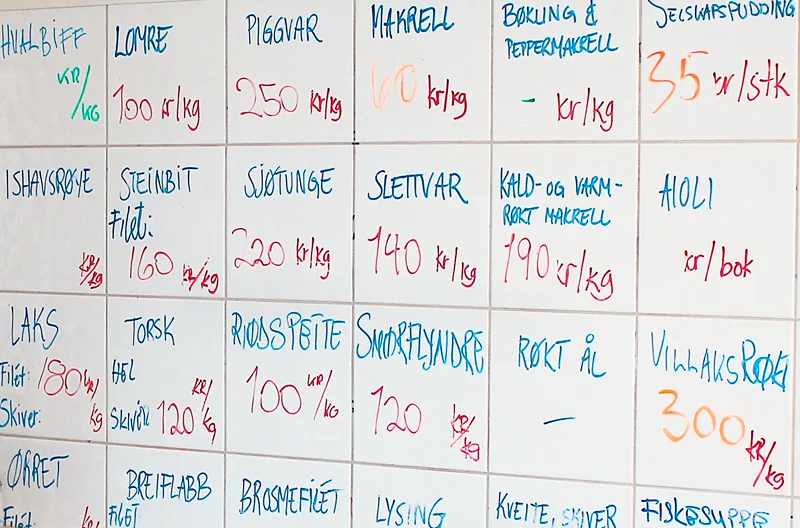 HVALBIFF
KR/KG
LOMRE
100 kr/kg
PIGGVAR
250 kr/kg
MAKRELL
60 kr/kg
BØKLING &
PEPPERMAKRELL
- kr/kg
SELSKAPSPUDDING
35 kr/stk
ISHAVSRØYE
KR/kg
STEINBIT
Filet:
160 kr/kg
SJØTUNGE
220 kr/kg
SLETTVAR
140 kr/kg
KALD- OG VARM-
RØKT MAKRELL
190 kr/kg
AIOLI
kr/bok
LAKS
Filet: 180 kr/kg
Skiver:
TORSK
HEL
Skiver 120 KR/kg
RØDSPETTE
100 KR/KG
SMØRFLYNDRE
120 KR/kg
RØKT ÅL
—
VILLAKS RØKT
300 KR/kg
ØRRET
Filét:
BREIFLABB
FILET
BROSMEFILÉT
LYSING
KVEITE, SKIVER
FISKESUPPE